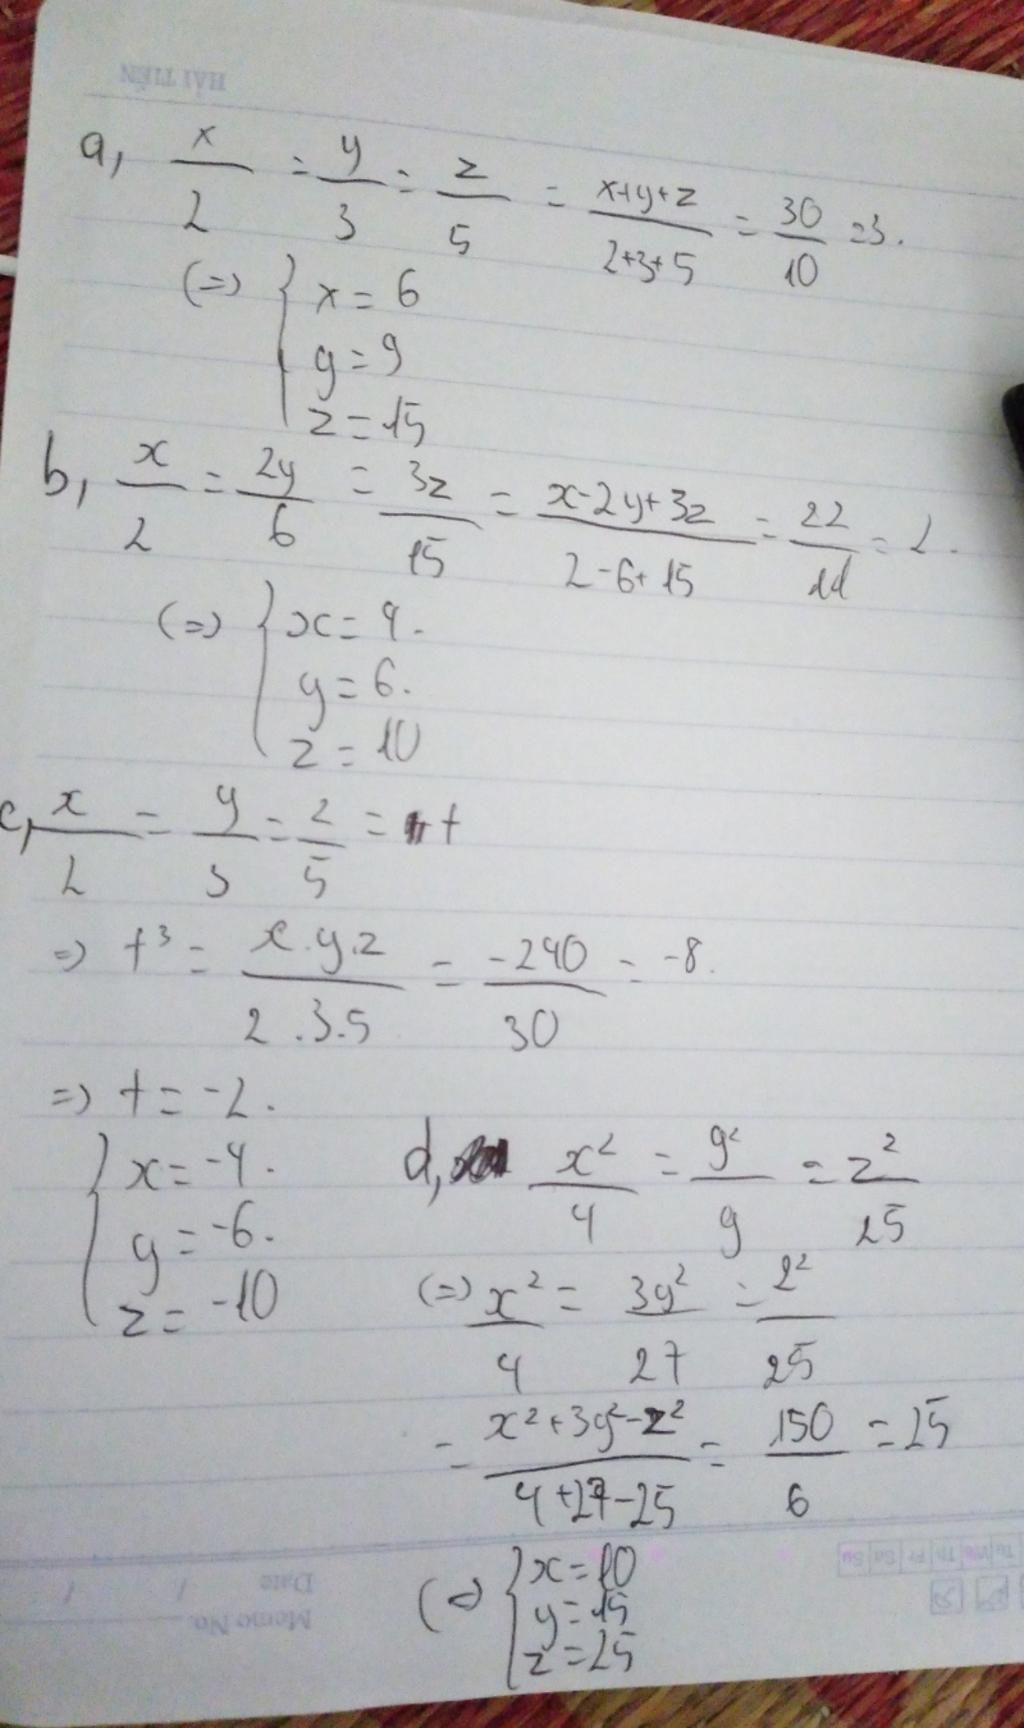 HẢI TIẾN
a, x/2 = y/3 = z/5 = x+y+z/2+3+5 = 30/10 = 3.
(=) { x = 6
y = 9
z = 15
b, x/2 = 2y/6 = 3z/15 = x-2y+3z/2-6+15 = 22/11 = 2.
(=) { x = 4.
y = 6.
z = 10
c, x/2 = y/3 = z/5 = t
=> t³ = x.y.z/2.3.5 = -240/30 = -8.
=> t = -2.
{ x = -4.
y = -6.
z = -10
d, x²/4 = y²/9 = z²/25
(=) x²/4 = 3y²/27 = z²/25
= x²+3y²-z²/4+27-25 = 150/6 = 25
(=) { x = 10
y = 15
z = 25
Tu We Th Fr Sa Su
Date / /
Memo No.